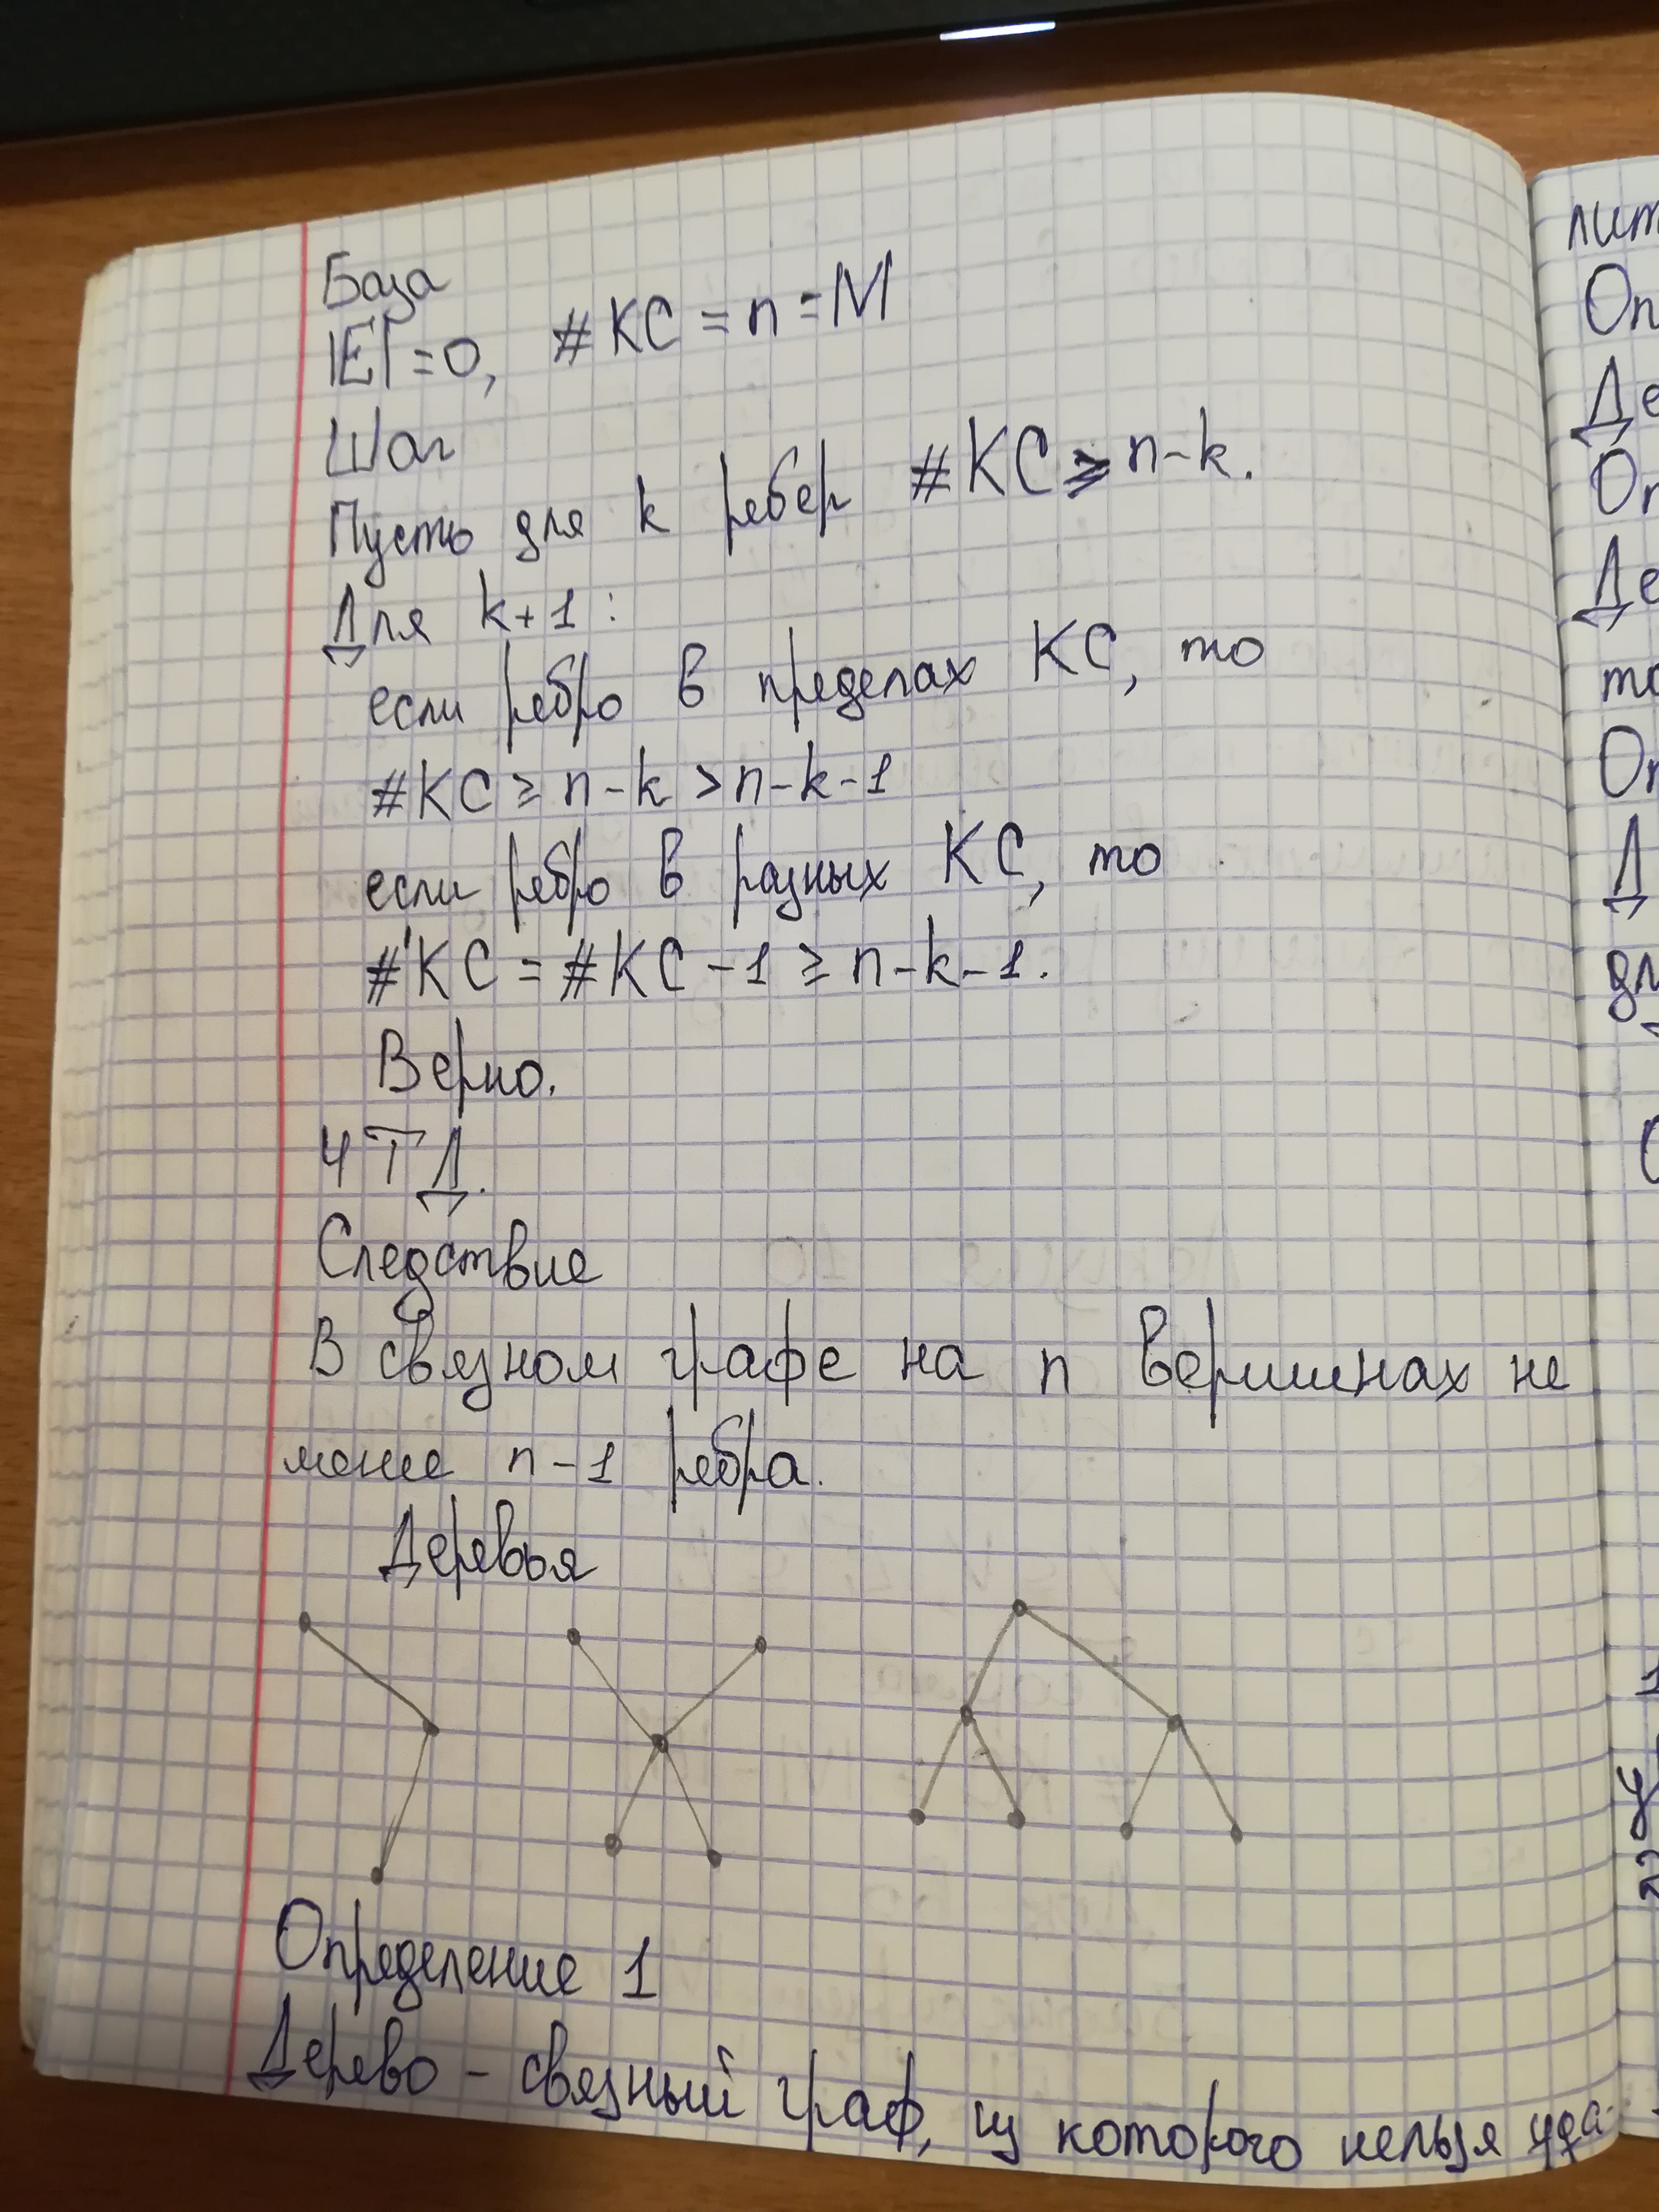 База
|E|=0, #КС = n = |V|
Шаг
Пусть для k ребер #КС ≥ n-k.
Для k+1 :
если ребро в пределах КС, то
#КС ≥ n-k > n-k-1
если ребро в разных КС, то
#'КС = #КС -1 ≥ n-k-1.
Верно.
ЧТД.
Следствие
В связном графе на n вершинах не
менее n-1 ребра.
Деревья
Определение 1
Дерево - связный граф, из которого нельзя уда-
лит
Оп
Де
Оп
Де
то
Оп
Д
дл